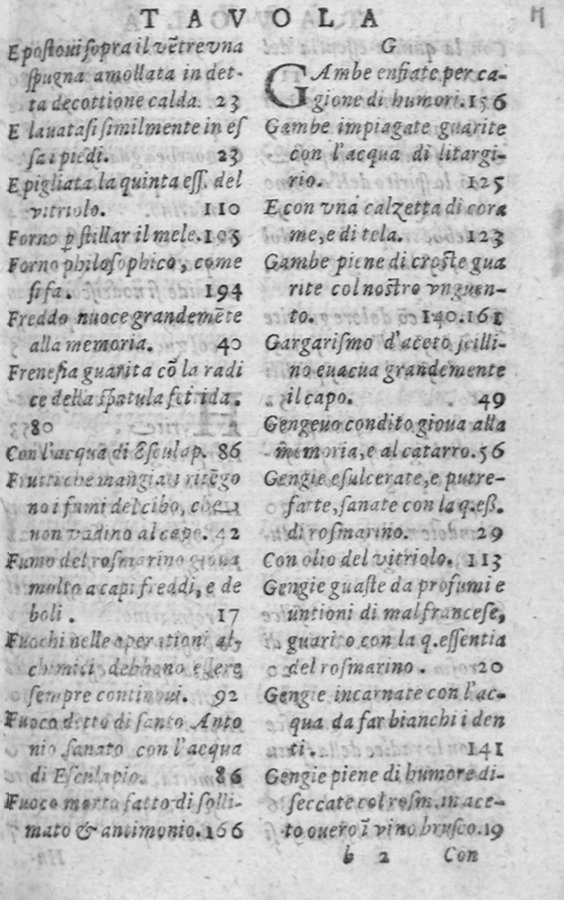 TAVOLA
E postoui sopra il vẽtre vna
spugna amollata in det-
ta decottione calda. 23
E lauatasi similmente in es
sa i piedi. 23
E pigliata la quinta ess. del
vitriolo. 110
Forno p stillar il mele. 195
Forno philosophico, come
si fa. 194
Freddo nuoce grandemẽte
alla memoria. 40
Frenesia guarita cõ la radi
ce della spatula fetida.
80
Con l'acqua di Esculap. 86
Frutti che mangiati ritẽgo
no i fumi del cibo, che
non vadino al capo. 42
Fumo del rosmarino gioua
molto a capi freddi, e de
boli. 17
Fuochi nelle operationi al-
chimici debbono essere
sempre continoui. 92
Fuoco detto di santo Anto
nio sanato con l'acqua
di Esculapio. 86
Fuoco morto fatto di solli-
mato & antimonio. 166
G
GAmbe enfiate per ca-
gione di humori. 156
Gambe impiagate guarite
con l'acqua di litargi-
rio. 125
E con vna calzetta di cora
me, e di tela. 123
Gambe piene di croste gua
rite col nostro vnguen-
to. 140.161
Gargarismo d'aceto scilli-
no euacua grandemente
il capo. 49
Gengeuo condito gioua alla
memoria, e al catarro. 56
Gengie esulcerate, e putre-
fatte, sanate con la q.ess.
di rosmarino. 29
Con olio del vitriolo. 113
Gengie guaste da profumi e
untioni di mal francese,
guarito con la q.essentia
del rosmarino. 20
Gengie incarnate con l'ac-
qua da far bianchi i den
ti. 141
Gengie piene di humore di-
seccate col rosm. in ace-
to ouero ĩ vino brusco. 19
b 2 Con